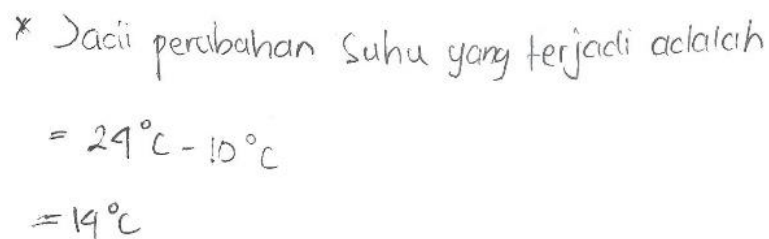 * Jadi perubahan suhu yang terjadi adalah
= 24°C - 10°C
= 14°C